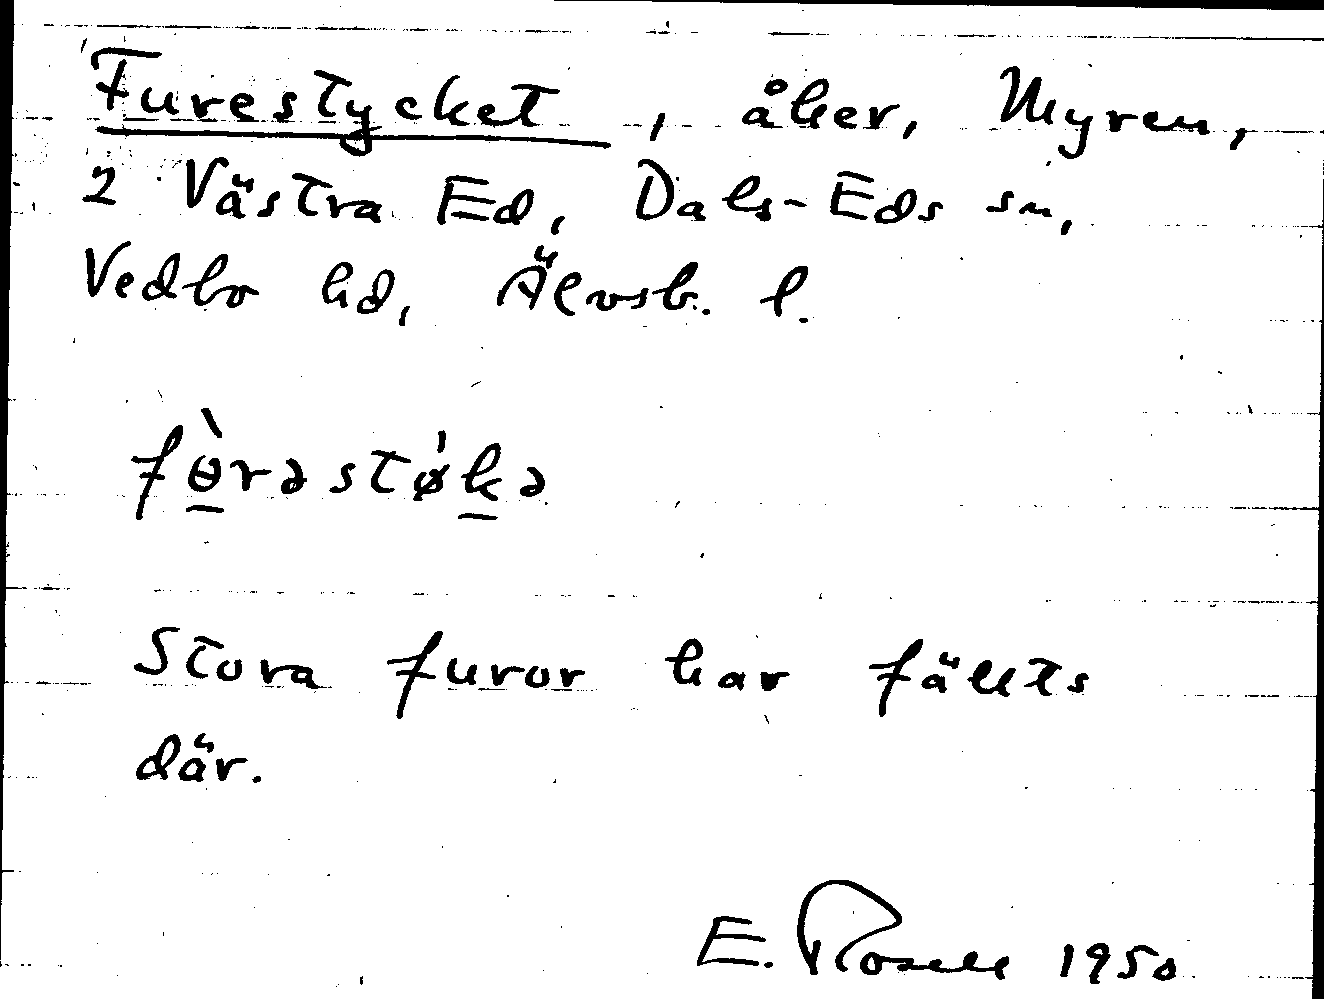 Furestycket, åker, Myren,
2 Västra Ed, Dals-Eds sn,
Vedbo hd, Älvsb. l.
fɵ̀rəstø̍kə
Stora furor har fällts
där.
E. Rosell 1950